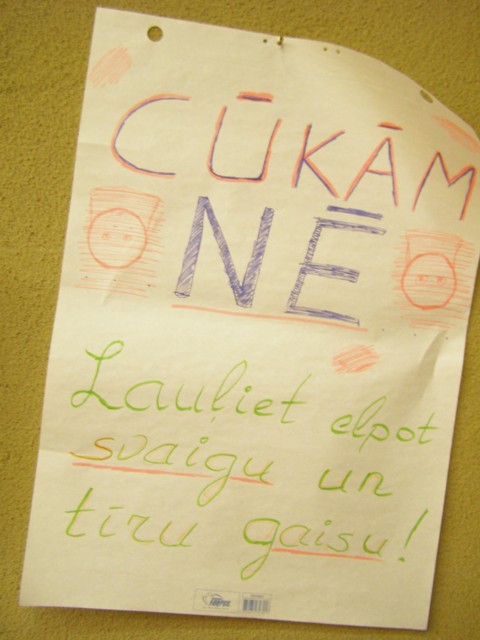 CŪKĀM
NĒ
Lauļiet elpot
svaigu un
tīru gaisu!